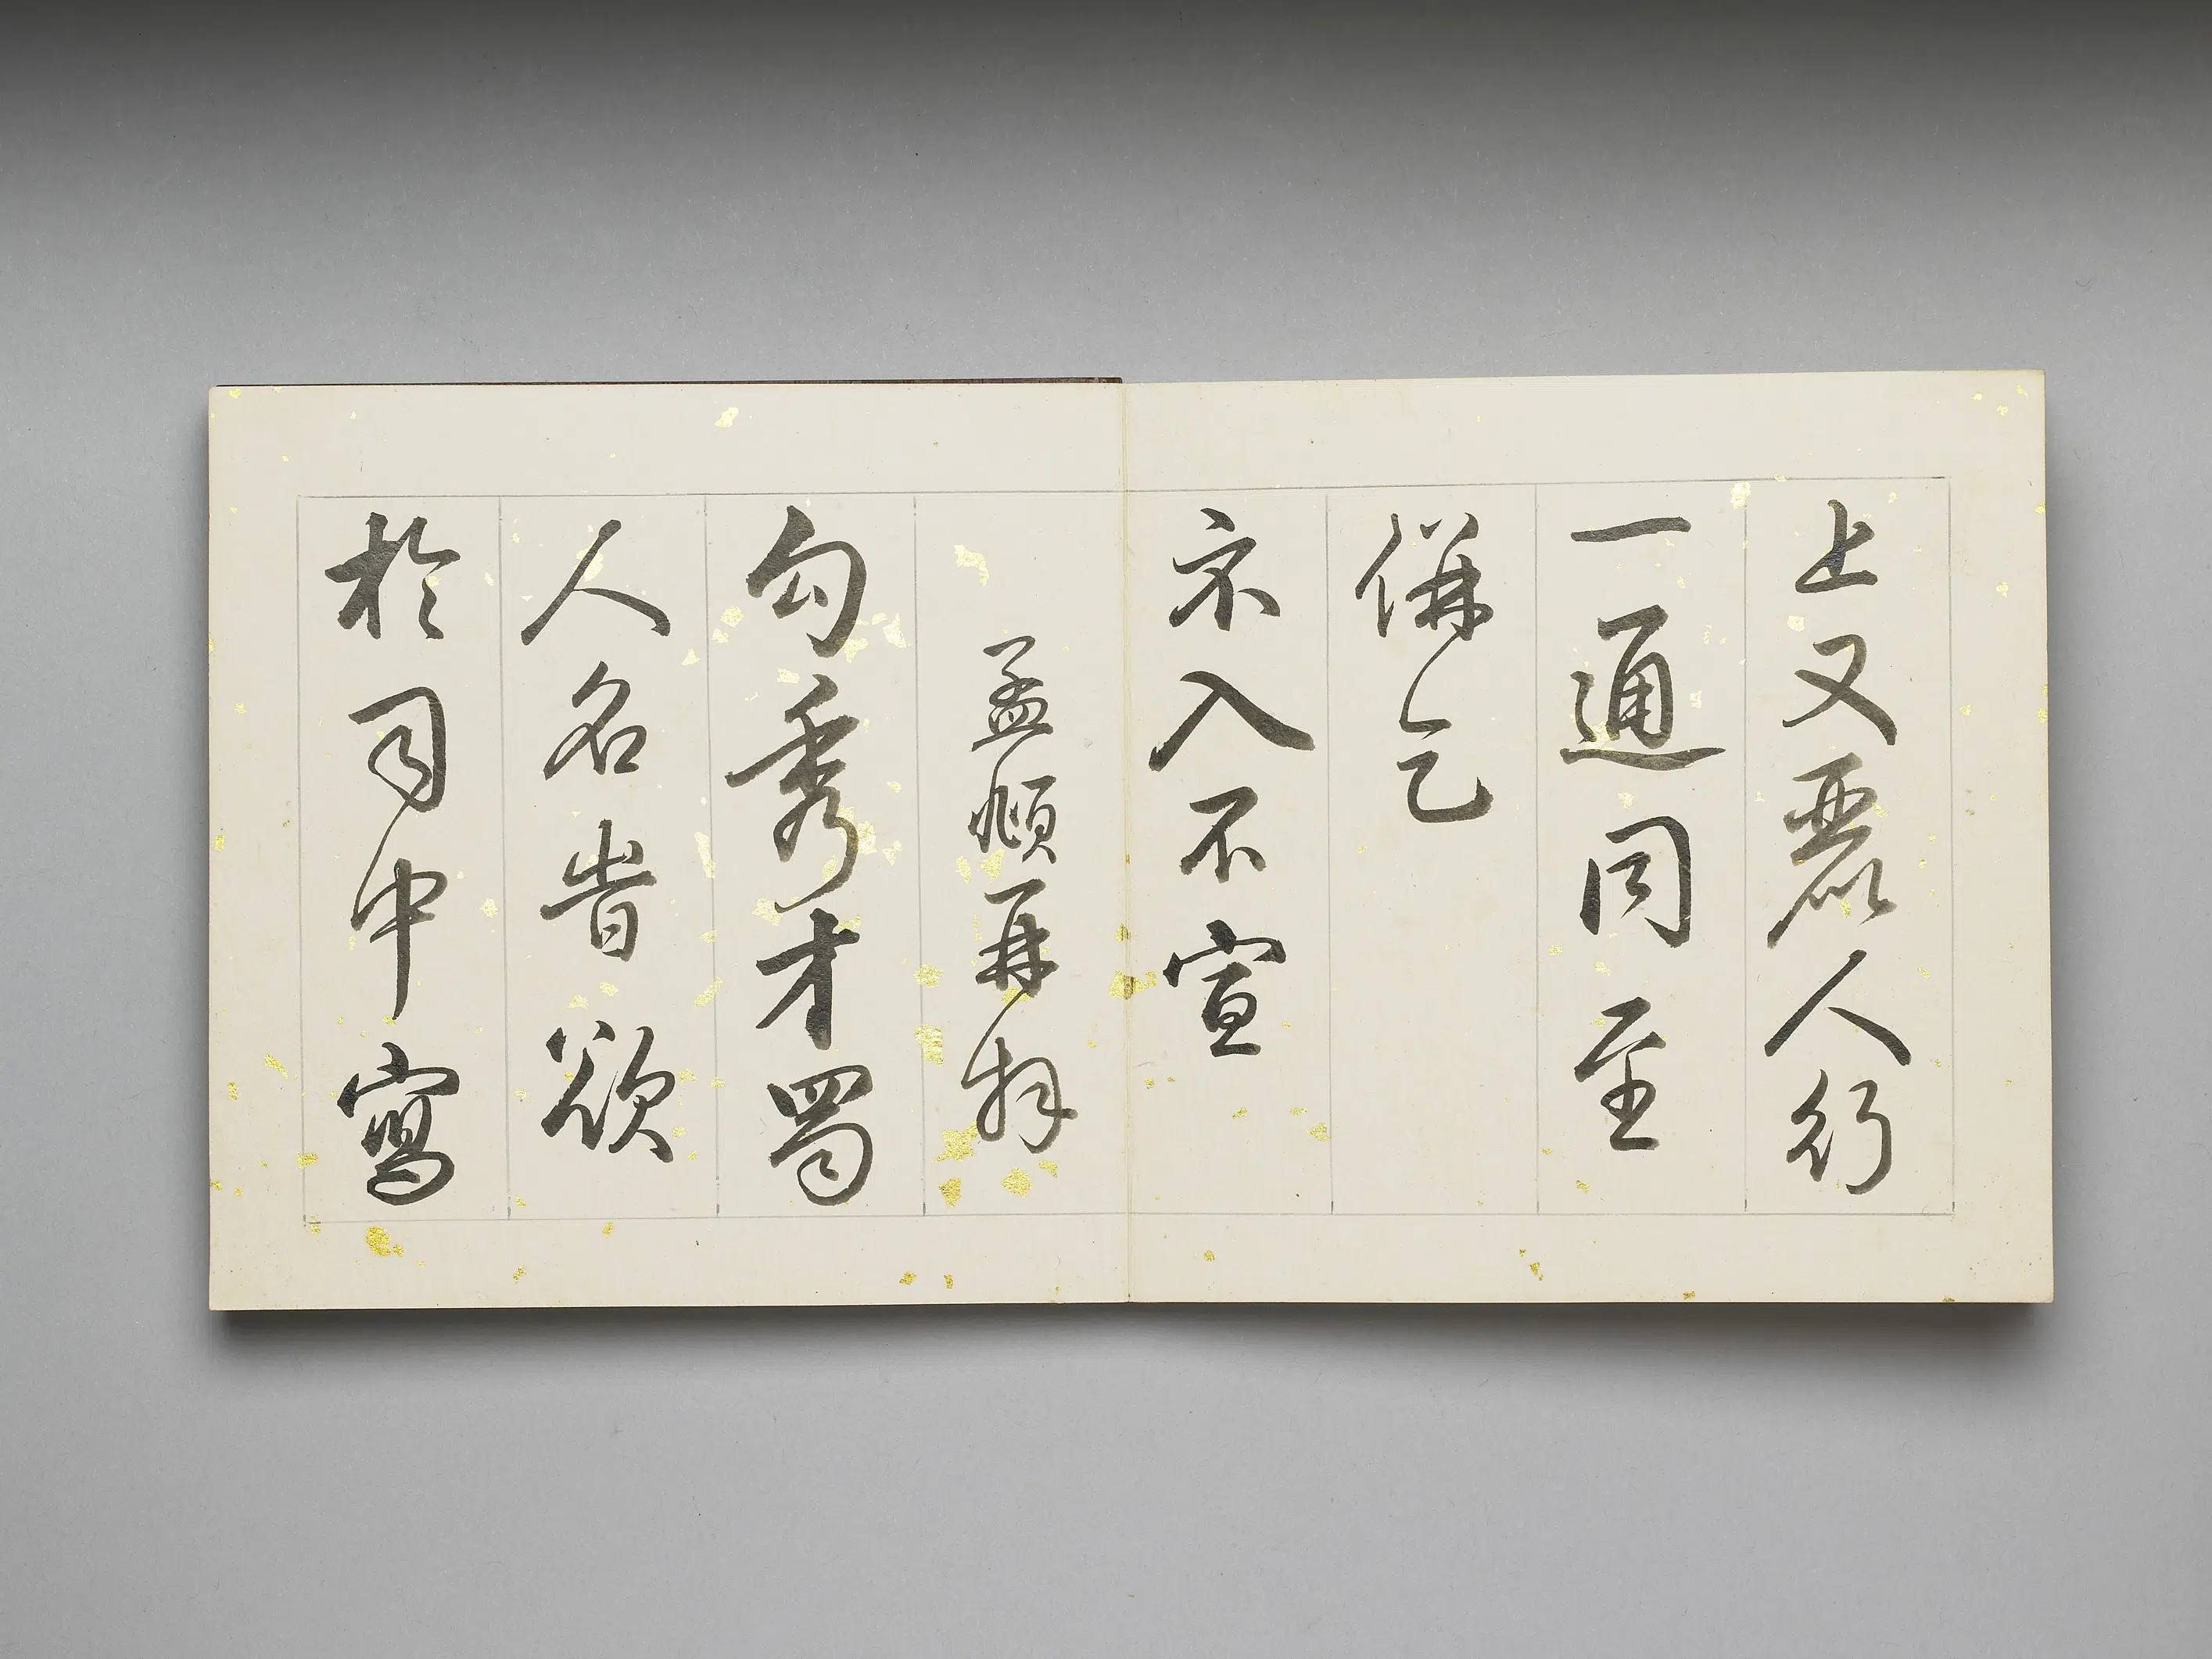 上又麗人行
一通同至
併乞
示入不宣
孟頫再拜
勾秀才蜀
人名旹欲
於司中寫